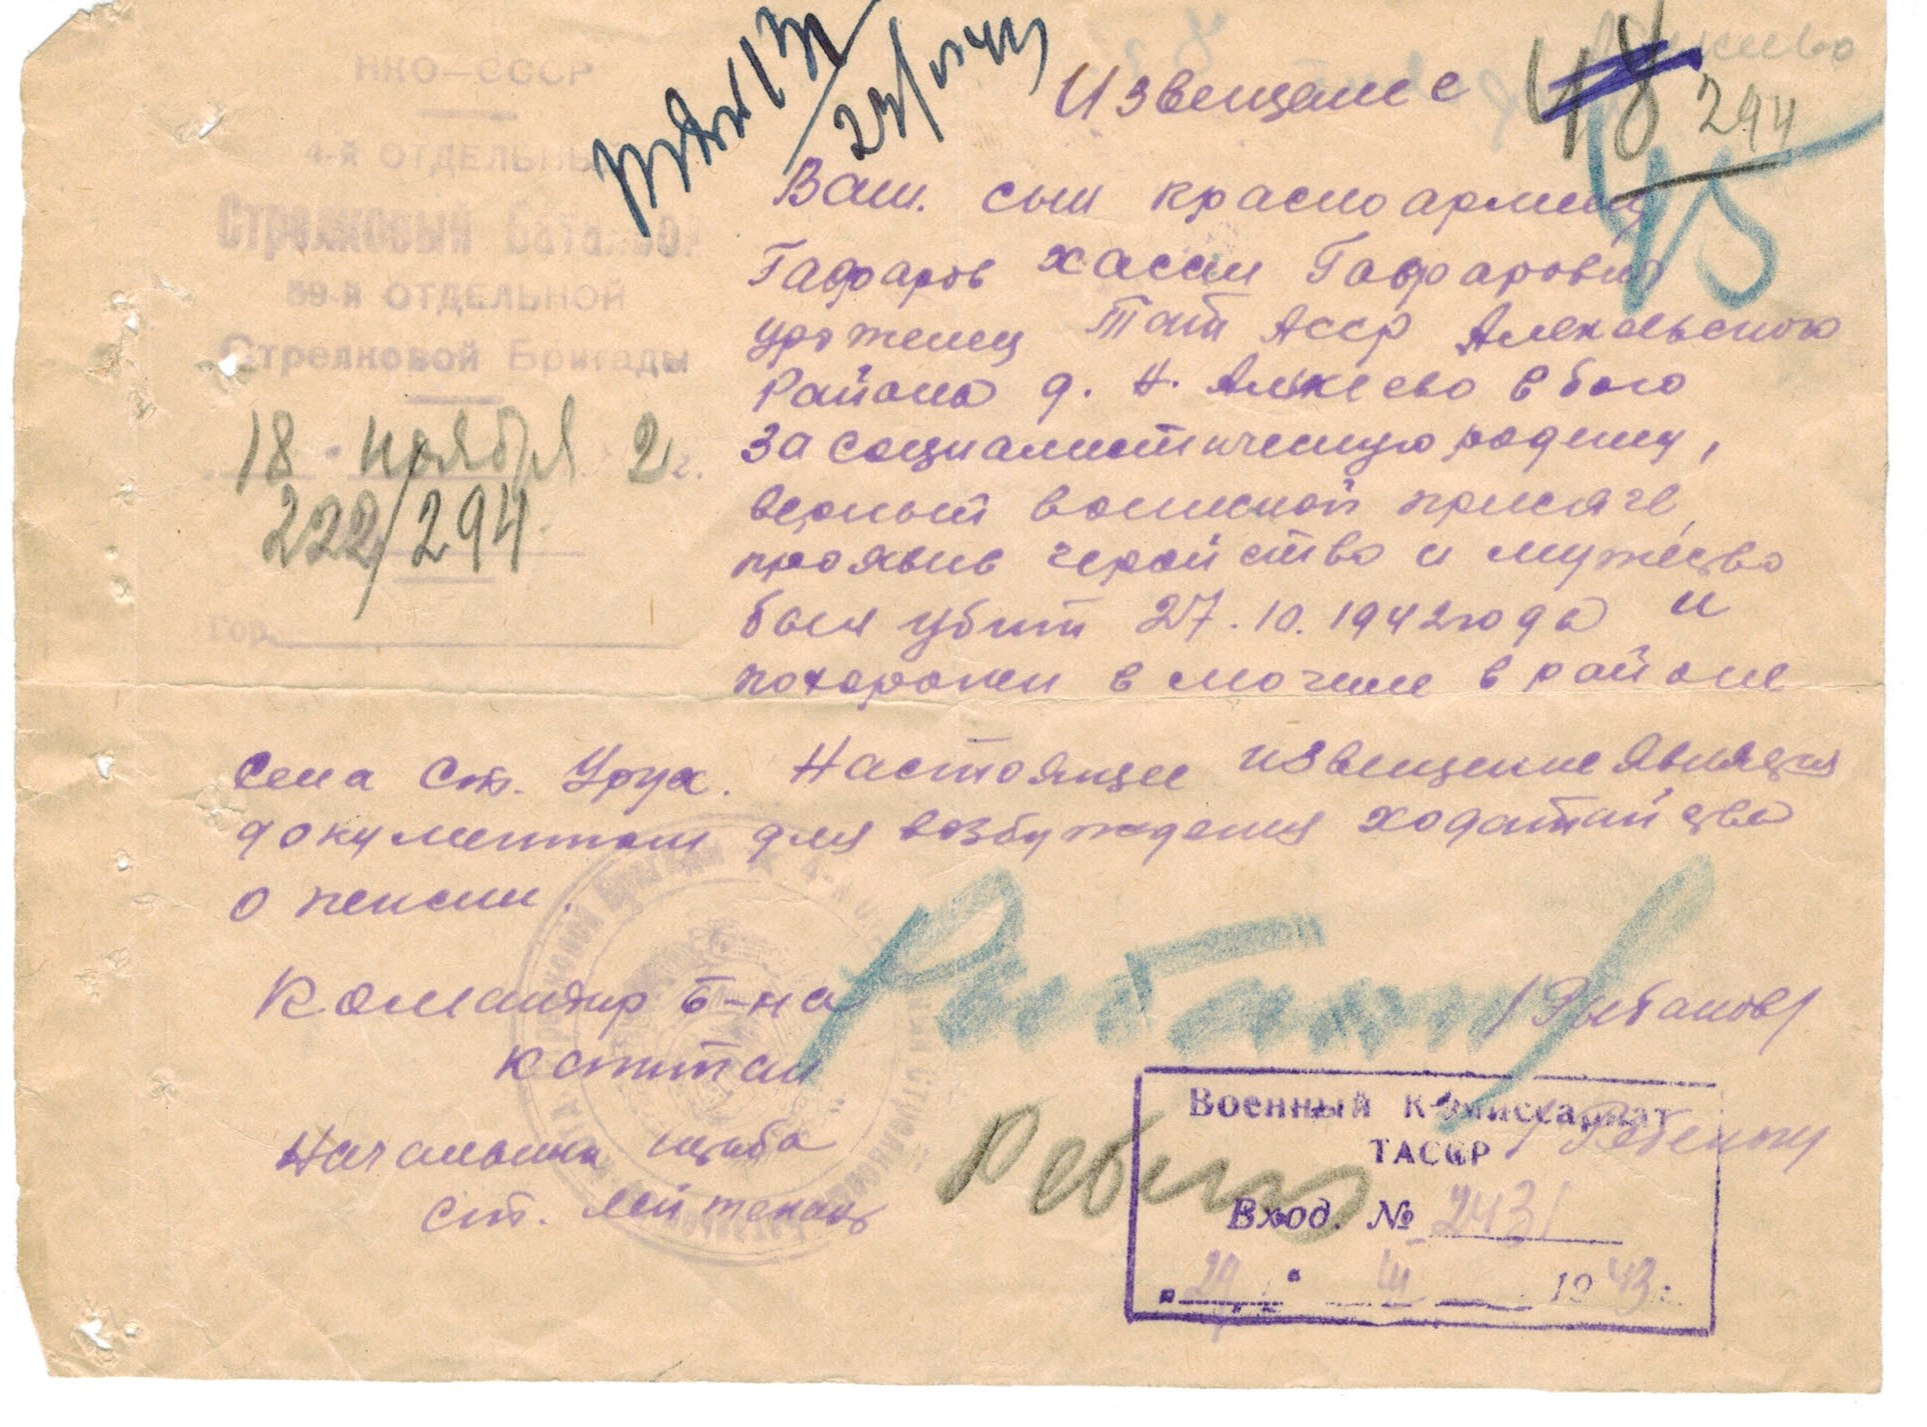 НКО–СССР
4-й ОТДЕЛЬНЫ
Стрелковый Батальон
59-й ОТДЕЛЬНОЙ
Стрелковой Бригады
18 ноября 2 г.
222/294
Гор.
Извещение
48 294
Ваш. сын красноармеец
Гаффаров Хасан Гаффарович
уроженец Тат АССР Алькеевского
района д. Н. Алькеево в бою
за социалистическую родину,
верный воинской присяге,
проявив геройство и мужество
был убит 27.10.1942 года и
похоронен в могиле в районе
села Ст. Урух. Настоящее извещение является
документом для возбуждения ходатайства
о пенсии.
Командир б-на
капитан
Рыбанов /Рыбанов/
Начальник штаба
Ст. лейтенант
Военный Комиссариат
ТАССР
Вход. № 2431
"29" III 1943 г.